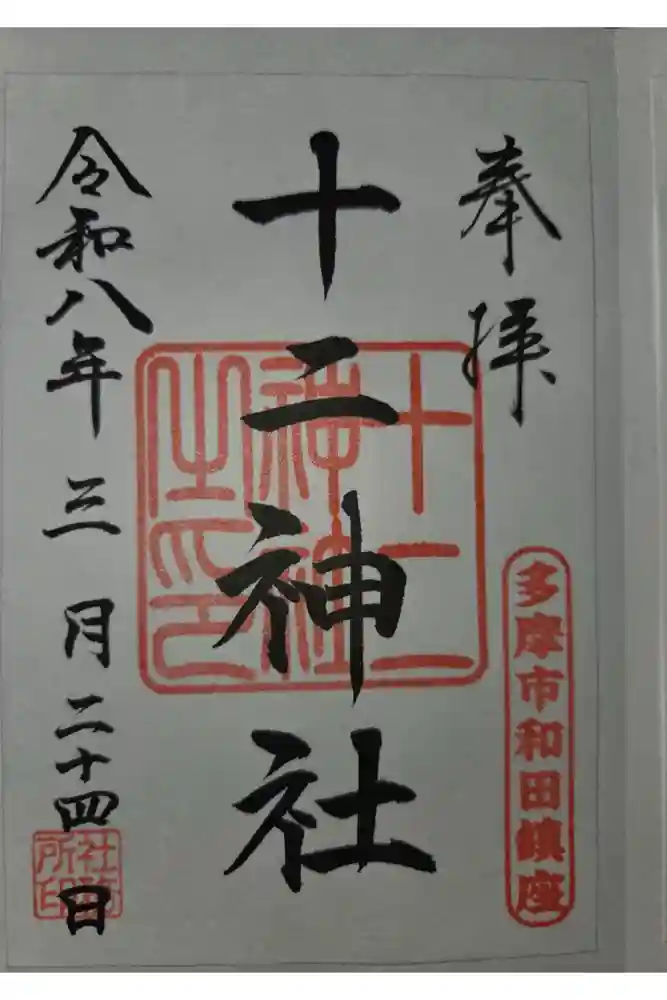 奉拝
多摩市和田鎮座
十二神社
十二神社之印
令和八年三月二十四日
社務所印